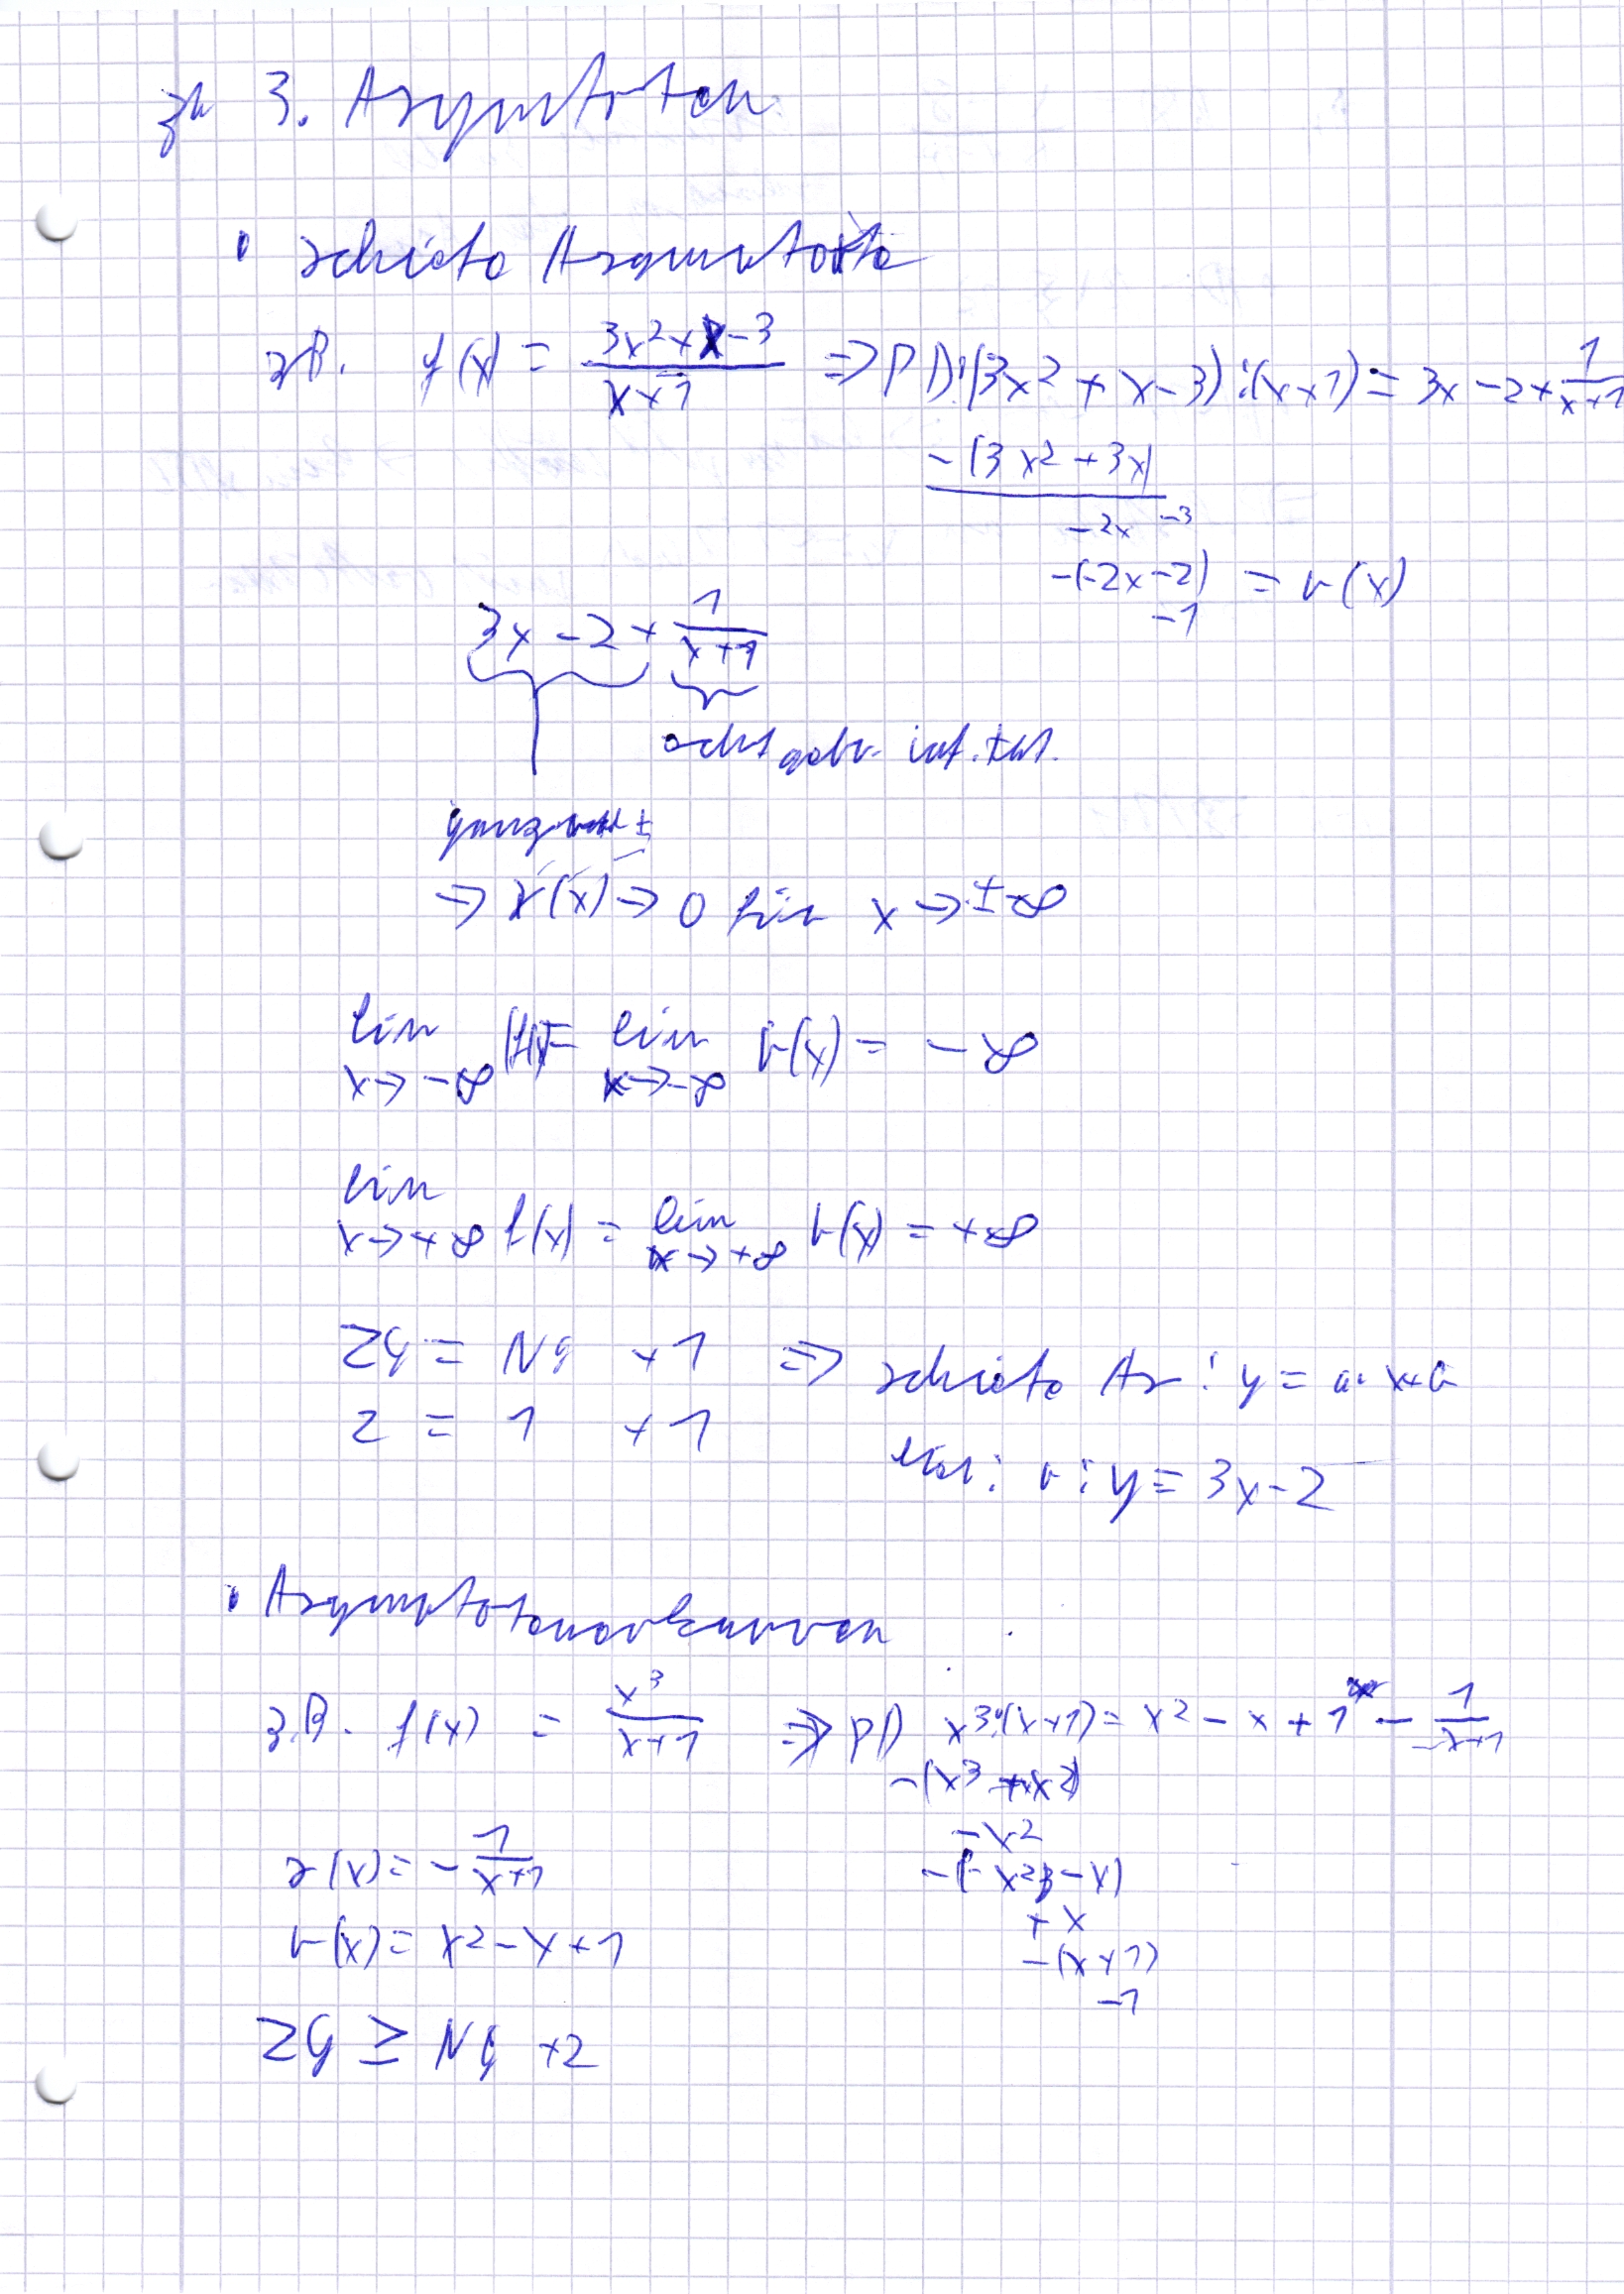 zu 3. Asymptoten
• schiefe Asymptote
zB. f(x) = (3x² + x - 3)/(x+1) ⇒ PD: (3x² + x - 3) : (x+1) = 3x - 2 + 1/(x+1)
-(3x² + 3x)
-2x -3
-(-2x -2) = v(x)
-1
3x - 2 + 1/(x+1)
echt gebr. rat. tkt.
ganzrat
→ r(x) → 0 für x → ±∞
lim x→-∞ f(x) = lim x→-∞ v(x) = -∞
lim x→+∞ f(x) = lim x→+∞ v(x) = +∞
ZG = NG +1 ⇒ schiefe As: y = a·x+b
2 = 1 +1
hier: v: y = 3x-2
• Asymptotenkurven
z.B. f(x) = x³/(x+1) ⇒ PD x³:(x+1) = x² - x + 1 - 1/(x+1)
-(x³ + x²)
-x²
-(-x² - x)
+ x
-(x+1)
-1
r(x) = - 1/(x+1)
v(x) = x² - x + 1
ZG ≥ NG +2